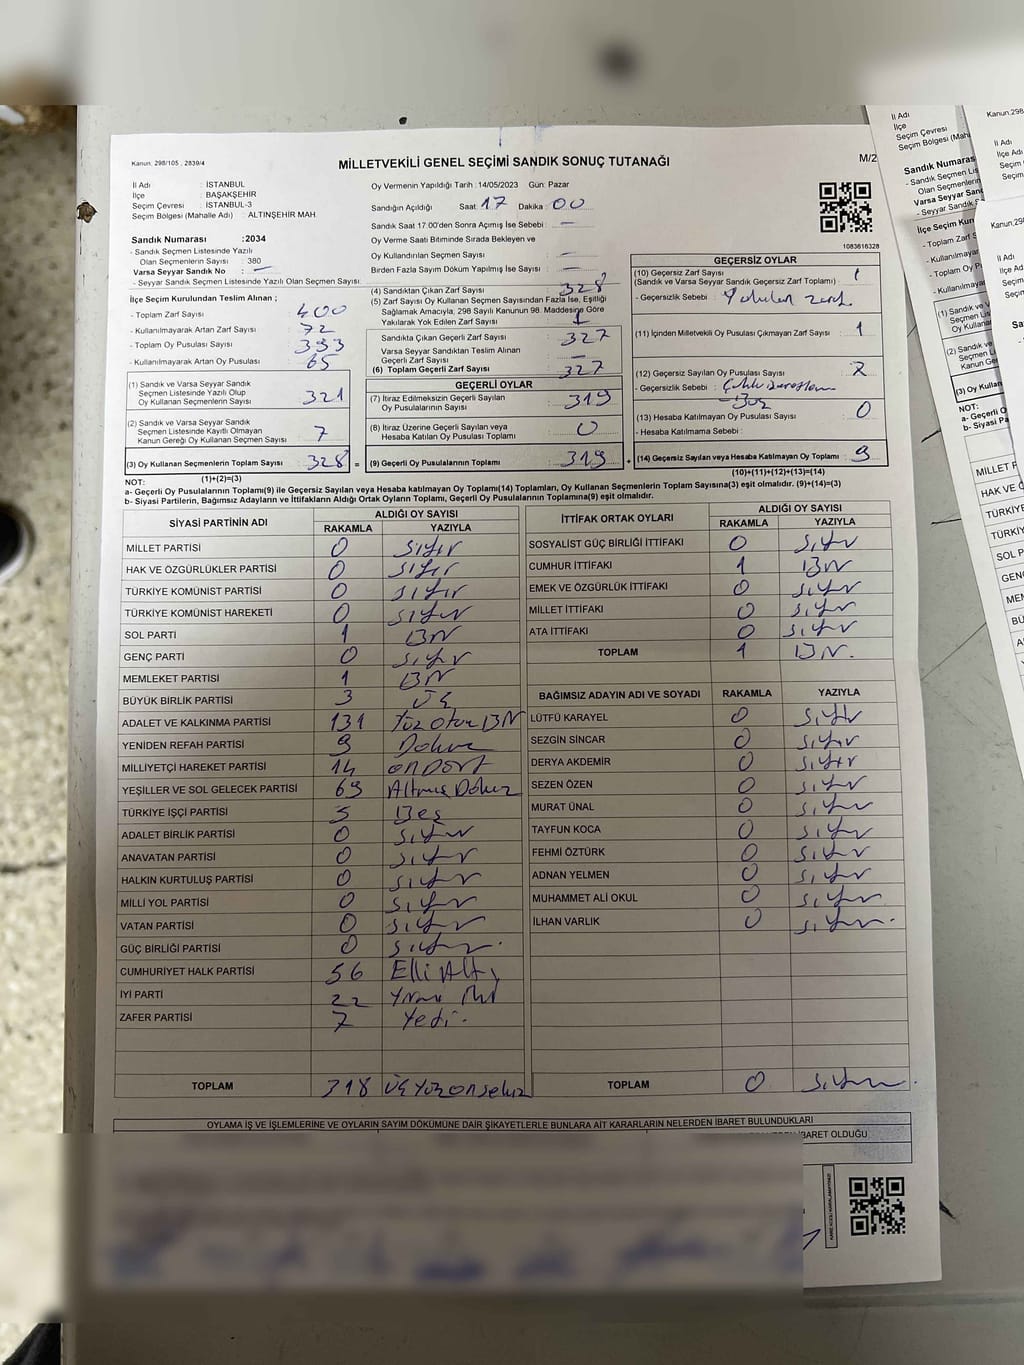 Kanun: 298/105 , 2839/4
MİLLETVEKİLİ GENEL SEÇİMİ SANDIK SONUÇ TUTANAĞI
M/2
İl Adı : İSTANBUL
İlçe : BAŞAKŞEHİR
Seçim Çevresi : İSTANBUL-3
Seçim Bölgesi (Mahalle Adı) : ALTINŞEHİR MAH.
Oy Vermenin Yapıldığı Tarih : 14/05/2023 Gün: Pazar
Sandığın Açıldığı Saat 17 Dakika : 00
Sandık Saat 17.00'den Sonra Açımış İse Sebebi : —
Oy Verme Saati Bitiminde Sırada Bekleyen ve
Oy Kullandırılan Seçmen Sayısı : —
Birden Fazla Sayım Döküm Yapılmış İse Sayısı : —
1083616328
Sandık Numarası : 2034
- Sandık Seçmen Listesinde Yazılı
Olan Seçmenlerin Sayısı : 380
Varsa Seyyar Sandık No : —
- Seyyar Sandık Seçmen Listesinde Yazılı Olan Seçmen Sayısı:
İlçe Seçim Kurulundan Teslim Alınan ;
- Toplam Zarf Sayısı : 400
- Kullanılmayarak Artan Zarf Sayısı : 72
- Toplam Oy Pusulası Sayısı : 393
- Kullanılmayarak Artan Oy Pusulası : 65
(1) Sandık ve Varsa Seyyar Sandık
Seçmen Listesinde Yazılı Olup
Oy Kullanan Seçmenlerin Sayısı : 321
(2) Sandık ve Varsa Seyyar Sandık
Seçmen Listesinde Kayıtlı Olmayan
Kanun Gereği Oy Kullanan Seçmen Sayısı : 7
(3) Oy Kullanan Seçmenlerin Toplam Sayısı : 328
(4) Sandıktan Çıkan Zarf Sayısı : 328
(5) Zarf Sayısı Oy Kullanan Seçmen Sayısından Fazla İse, Eşitliği
Sağlamak Amacıyla, 298 Sayılı Kanunun 98. Maddesine Göre
Yakılarak Yok Edilen Zarf Sayısı : 1
Sandıkta Çıkan Geçerli Zarf Sayısı : 327
Varsa Seyyar Sandıktan Teslim Alınan
Geçerli Zarf Sayısı : —
(6) Toplam Geçerli Zarf Sayısı : 327
GEÇERLİ OYLAR
(7) İtiraz Edilmeksizin Geçerli Sayılan
Oy Pusulalarının Sayısı : 319
(8) İtiraz Üzerine Geçerli Sayılan veya
Hesaba Katılan Oy Pusulası Toplamı : 0
= (9) Geçerli Oy Pusulalarının Toplamı : 319
GEÇERSİZ OYLAR
(10) Geçersiz Zarf Sayısı : 1
(Sandık ve Varsa Seyyar Sandık Geçersiz Zarf Toplamı)
- Geçersizlik Sebebi : Yakılan zarf
(11) İçinden Milletvekili Oy Pusulası Çıkmayan Zarf Sayısı : 1
(12) Geçersiz Sayılan Oy Pusulası Sayısı : 2
- Geçersizlik Sebebi :
(13) Hesaba Katılmayan Oy Pusulası Sayısı : 0
- Hesaba Katılmama Sebebi :
+ (14) Geçersiz Sayılan veya Hesaba Katılmayan Oy Toplamı : 9
NOT: (1)+(2)=(3)
(10)+(11)+(12)+(13)=(14)
a- Geçerli Oy Pusulalarının Toplamı(9) ile Geçersiz Sayılan veya Hesaba katılmayan Oy Toplamı(14) Toplamları, Oy Kullanan Seçmenlerin Toplam Sayısına(3) eşit olmalıdır. (9)+(14)=(3)
b- Siyasi Partilerin, Bağımsız Adayların ve İttifakların Aldığı Ortak Oyların Toplamı, Geçerli Oy Pusulalarının Toplamına(9) eşit olmalıdır.
SİYASİ PARTİNİN ADI ALDIĞI OY SAYISI
RAKAMLA YAZIYLA
MİLLET PARTİSİ 0 sıfır
HAK VE ÖZGÜRLÜKLER PARTİSİ 0 sıfır
TÜRKİYE KOMÜNİST PARTİSİ 0 sıfır
TÜRKİYE KOMÜNİST HAREKETİ 0 sıfır
SOL PARTİ 1 BİR
GENÇ PARTİ 0 sıfır
MEMLEKET PARTİSİ 1 BİR
BÜYÜK BİRLİK PARTİSİ 3 üç
ADALET VE KALKINMA PARTİSİ 131 Yüz otuz BİR
YENİDEN REFAH PARTİSİ 9 Dokuz
MİLLİYETÇİ HAREKET PARTİSİ 14 onDört
YEŞİLLER VE SOL GELECEK PARTİSİ 69 Altmış Dokuz
TÜRKİYE İŞÇİ PARTİSİ 5 Beş
ADALET BİRLİK PARTİSİ 0 sıfır
ANAVATAN PARTİSİ 0 sıfır
HALKIN KURTULUŞ PARTİSİ 0 sıfır
MİLLİ YOL PARTİSİ 0 sıfır
VATAN PARTİSİ 0 sıfır
GÜÇ BİRLİĞİ PARTİSİ 0 sıfır.
CUMHURİYET HALK PARTİSİ 56 Elli Altı
İYİ PARTİ 22 Yirmi iki
ZAFER PARTİSİ 7 Yedi.
TOPLAM 318 üç yüz onsekiz
İTTİFAK ORTAK OYLARI ALDIĞI OY SAYISI
RAKAMLA YAZIYLA
SOSYALİST GÜÇ BİRLİĞİ İTTİFAKI 0 sıfır
CUMHUR İTTİFAKI 1 BİR
EMEK VE ÖZGÜRLÜK İTTİFAKI 0 sıfır
MİLLET İTTİFAKI 0 sıfır
ATA İTTİFAKI 0 sıfır
TOPLAM 1 BİR.
BAĞIMSIZ ADAYIN ADI VE SOYADI RAKAMLA YAZIYLA
LÜTFÜ KARAYEL 0 sıfır
SEZGİN SİNCAR 0 sıfır
DERYA AKDEMİR 0 sıfır
SEZEN ÖZEN 0 sıfır
MURAT ÜNAL 0 sıfır
TAYFUN KOCA 0 sıfır
FEHMİ ÖZTÜRK 0 sıfır
ADNAN YELMEN 0 sıfır
MUHAMMET ALİ OKUL 0 sıfır
İLHAN VARLIK 0 sıfır.
TOPLAM 0 sıfır.
OYLAMA İŞ VE İŞLEMLERİNE VE OYLARIN SAYIM DÖKÜMÜNE DAİR ŞİKAYETLERLE BUNLARA AİT KARARLARIN NELERDEN İBARET BULUNDUKLARI
İBARET OLDUĞU